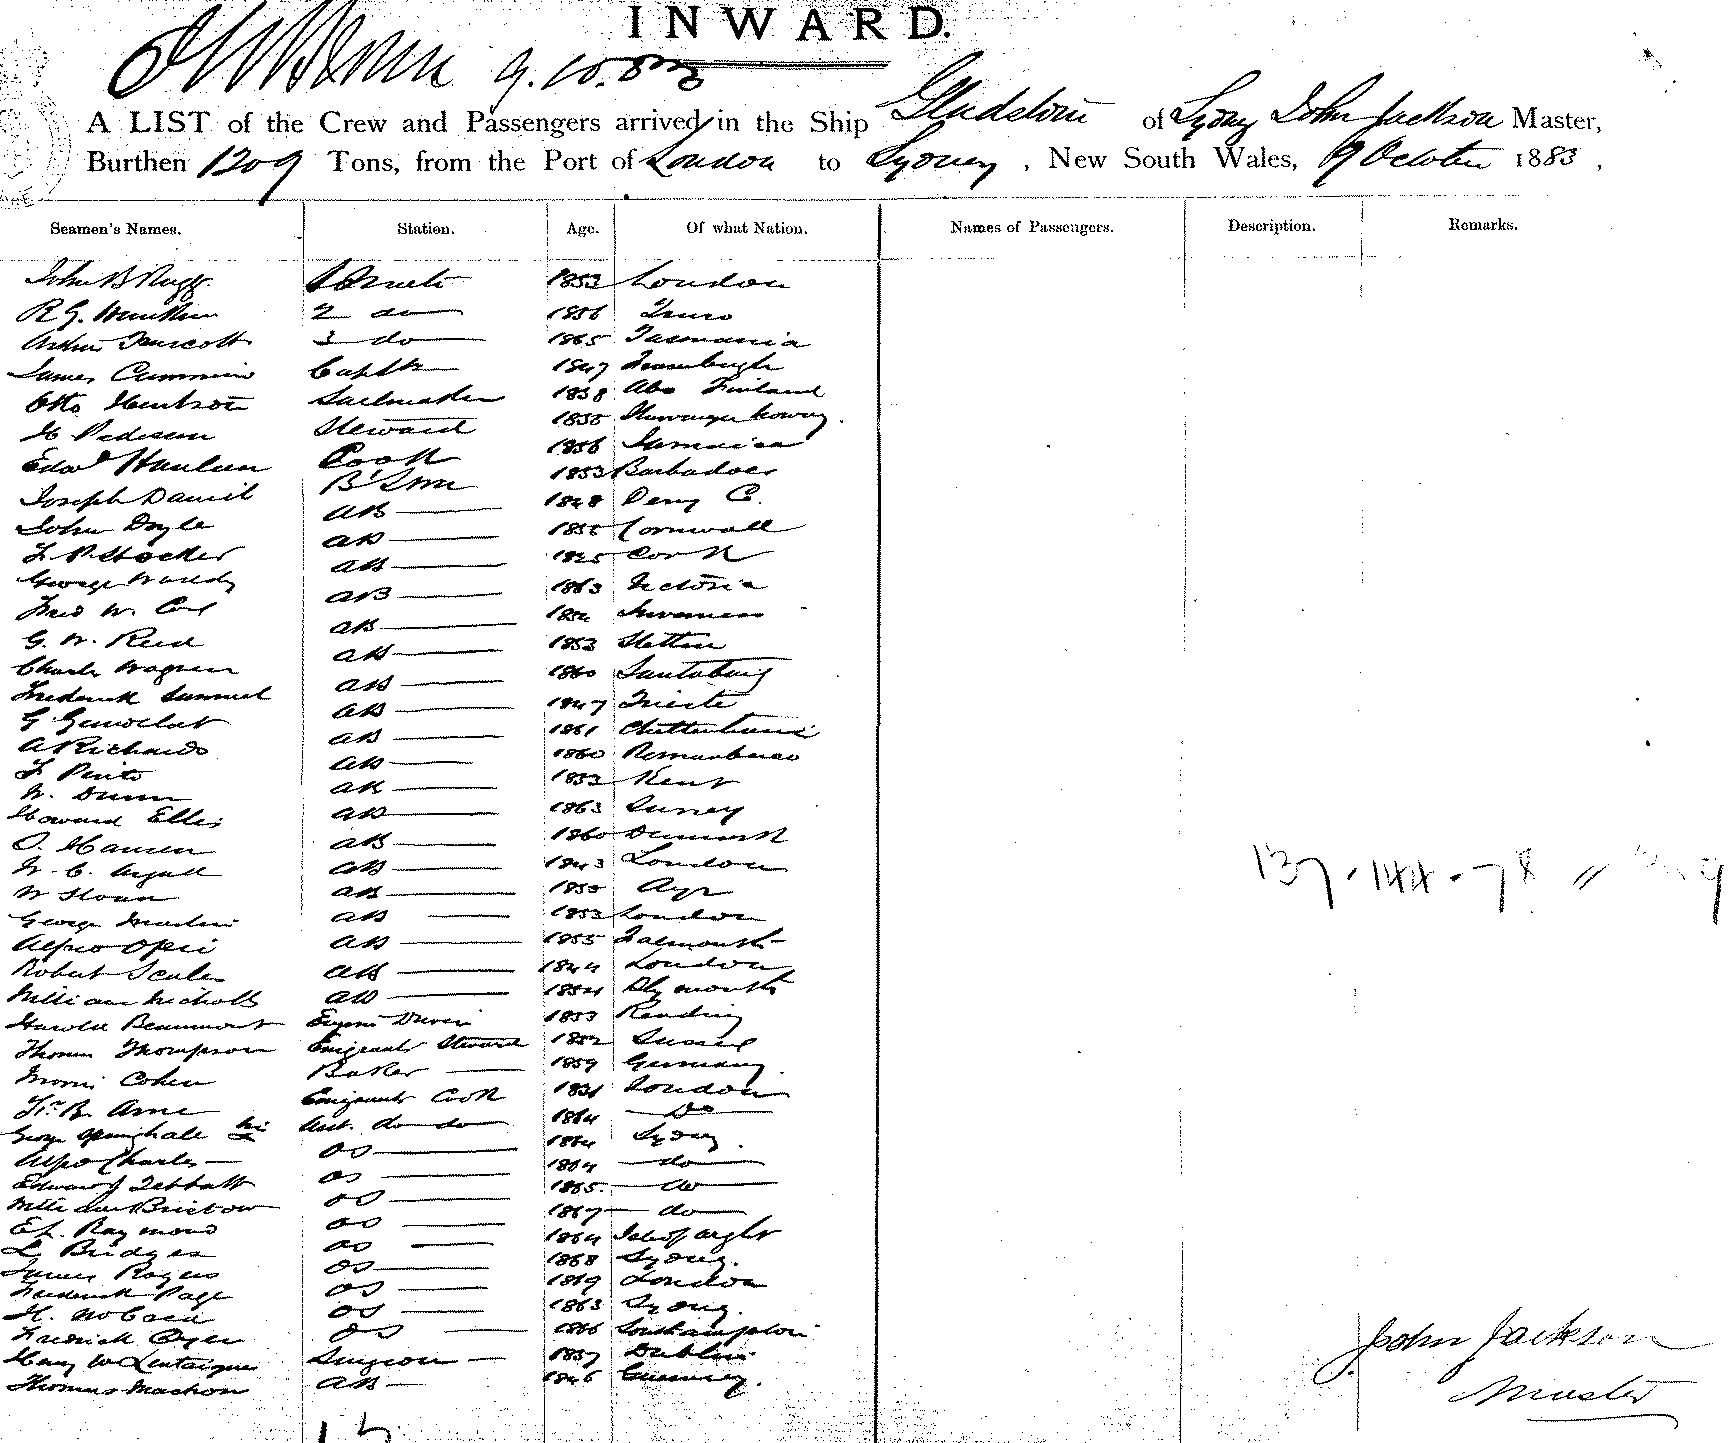 INWARD.
A LIST of the Crew and Passengers arrived in the Ship Gladstone of Sydney John Jackson Master,
Burthen 1209 Tons, from the Port of London to Sydney, New South Wales, 9 October 1883,
Seamen's Names. Station. Age. Of what Nation. Names of Passengers. Description. Remarks.
John B Rugg 1 Mate 1853 London
R G. 2 do 1856 Truro
Arthur 3 do 1865 Tasmania
James Cummin 1847
Otto Sailmaker 1838 Abo Finland
H Pedersen Steward 1855
Edwd Hanlun Cook 1856 Jamaica
Joseph Daniel B'Swn 1853 Barbadoes
John Doyle AB 1848 Derry C.
F. P. Stocker AB 1855 Cornwall
George AB 1845 Cork
Fred W. Cox AB 1863 Victoria
G. W. Reid AB 1854 Swansea
Charles Wagner AB 1853 Stettin
Frederick Samuel AB 1860
G AB 1847 Trieste
A Richards AB 1861 Cheltenham
F Pinto AB 1860 Pernambuco
W. Dunn AB 1853 Kent
Howard Ellis AB 1863 Surrey
O. Hansen AB 1860 Denmark
W. C. AB 1843 London
W Sloan AB 1855 Ayr
George Martin AB 1853 London
Alfred Opie AB 1855 Falmouth
Robert Scales AB 1844 London
William Nicholls AB 1854 Plymouth
Harold Beaumont Engine Driver 1853 Reading
Thomas Thompson Emigrants Steward 1852 Sussex
Morris Cohen Baker 1859 Germany
B. Emigrants Cook 1831 London
George Asst. do do 1864 Do
Alfd Charles OS 1864 Sydney.
Edward J Tebbutt OS 1864 do
William Bristow OS 1865 do
Ed. Raymond OS 1867 do
L. Bridges OS 1864 Isle of Wight
James Rogers OS 1868 Sydney.
Frederick Page OS 1869 London
H. OS 1863 Sydney.
Fredrick OS 1866 Southampton
Harry W Lentaigne Surgeon 1857 Dublin
Thomas Machon AB 1846 Guernsey.
137.144.78
John Jackson
Master